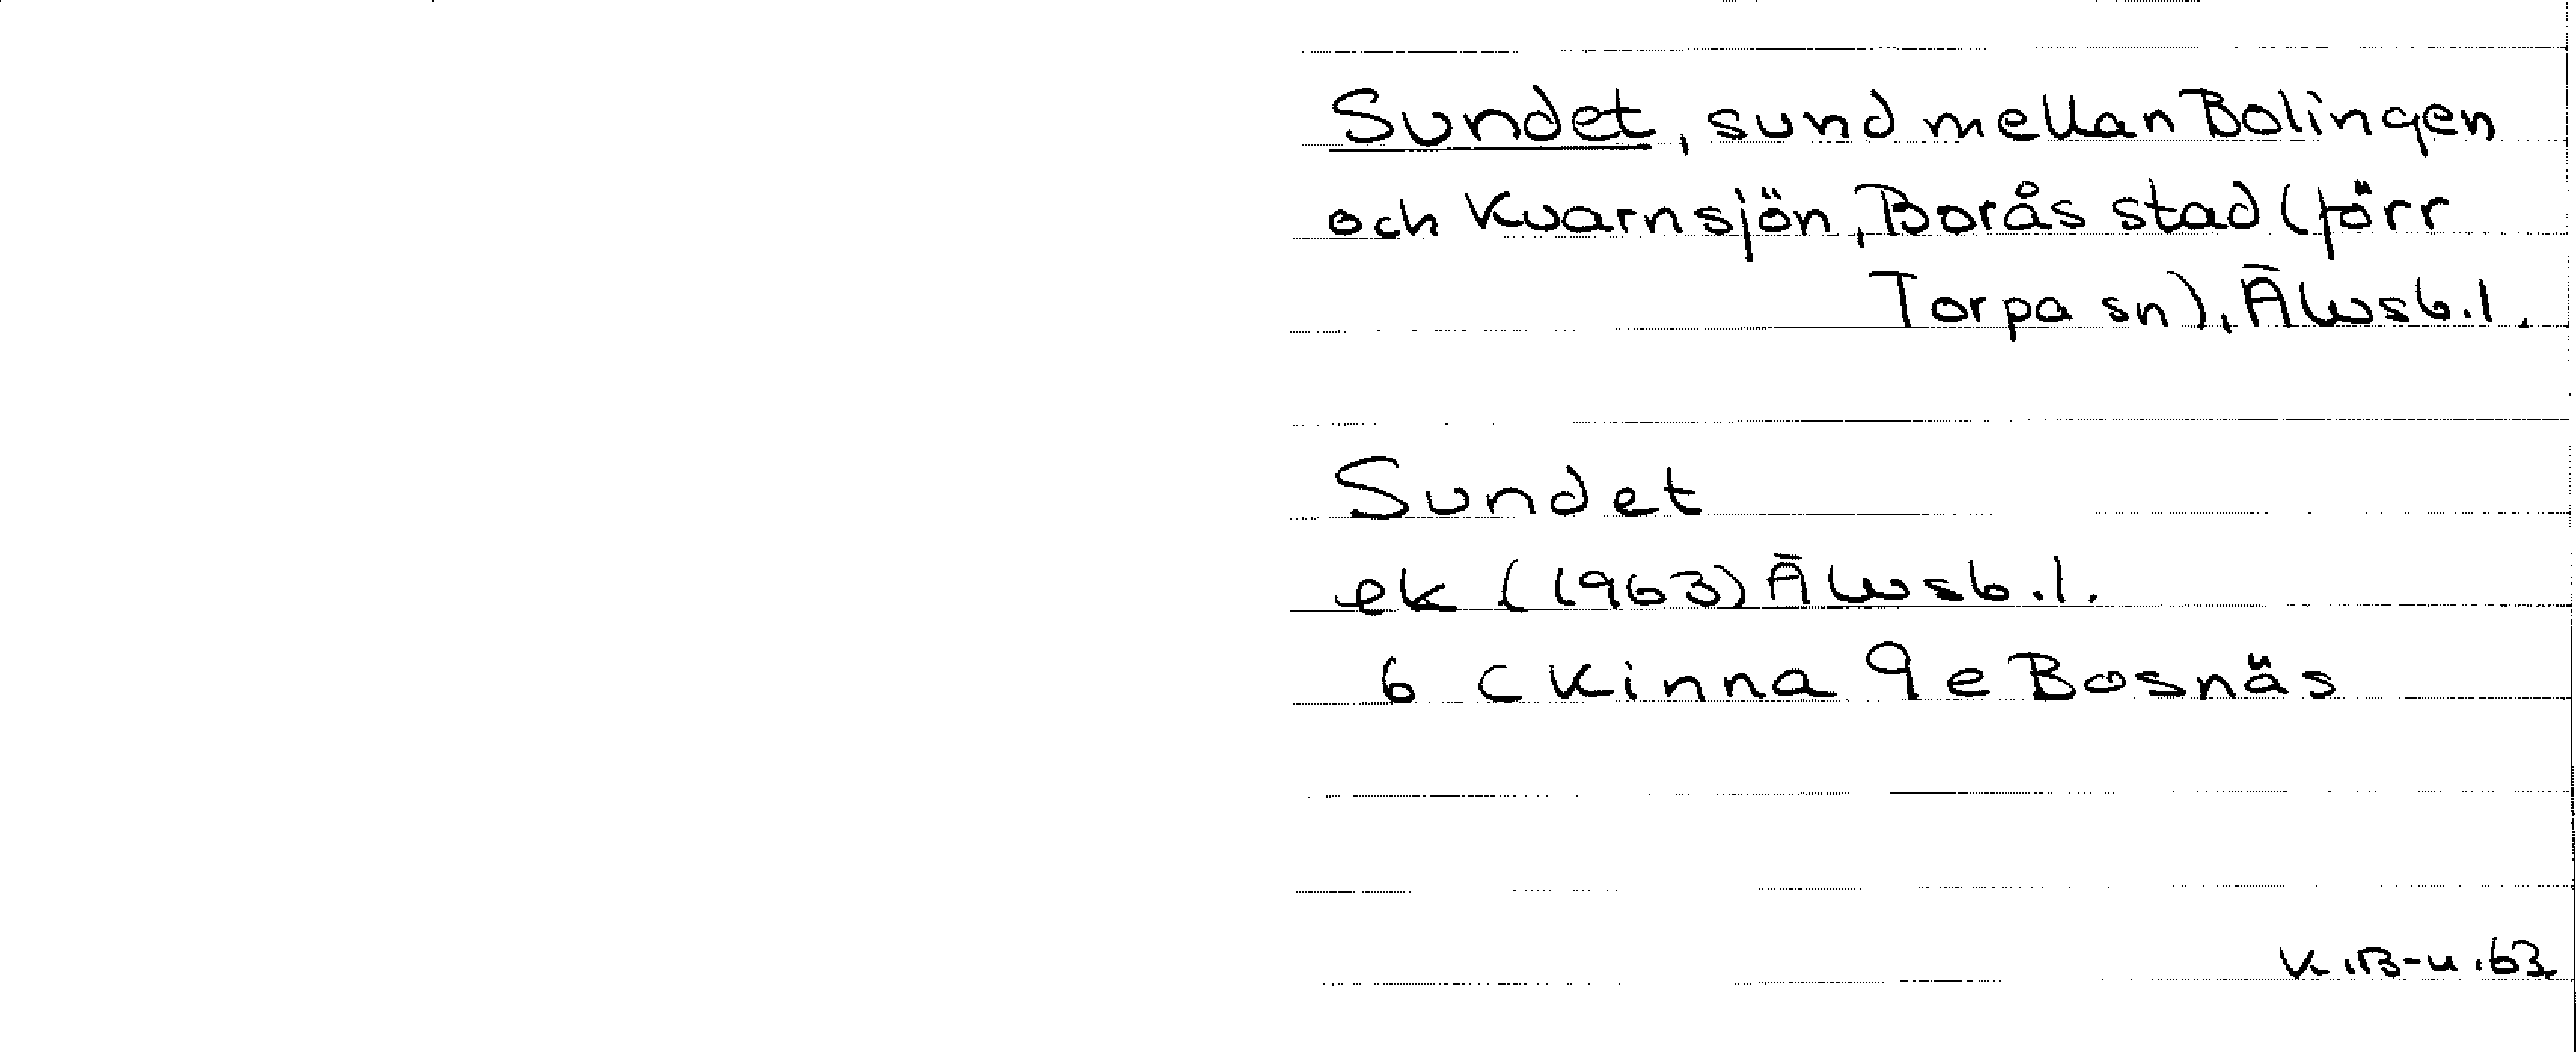 Sundet, sund mellan Bolingen
och Kvarnsjön, Borås stad (förr
Torpa sn), Älvsb.l.
Sundet
ek (1963) Älvsb.l.
6 C Kinna 9e Bosnäs
K.B-u.63